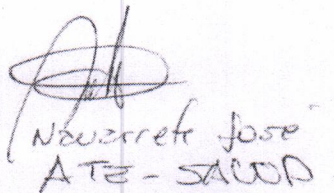 Navarrete José
ATE-SALUD